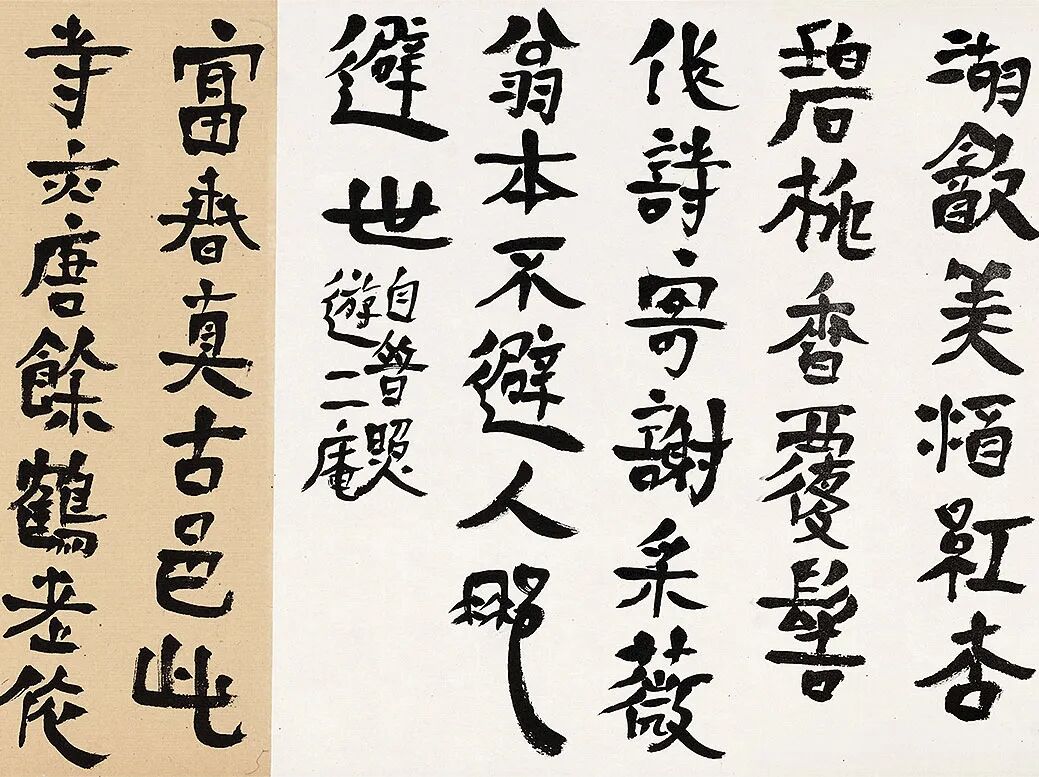 湖飲美酒紅杏
碧桃香覆髻
作詩寄謝采薇
翁本不避人那
避世
自普照
遊二庵
富春真古邑此
寺亦唐餘鶴老依